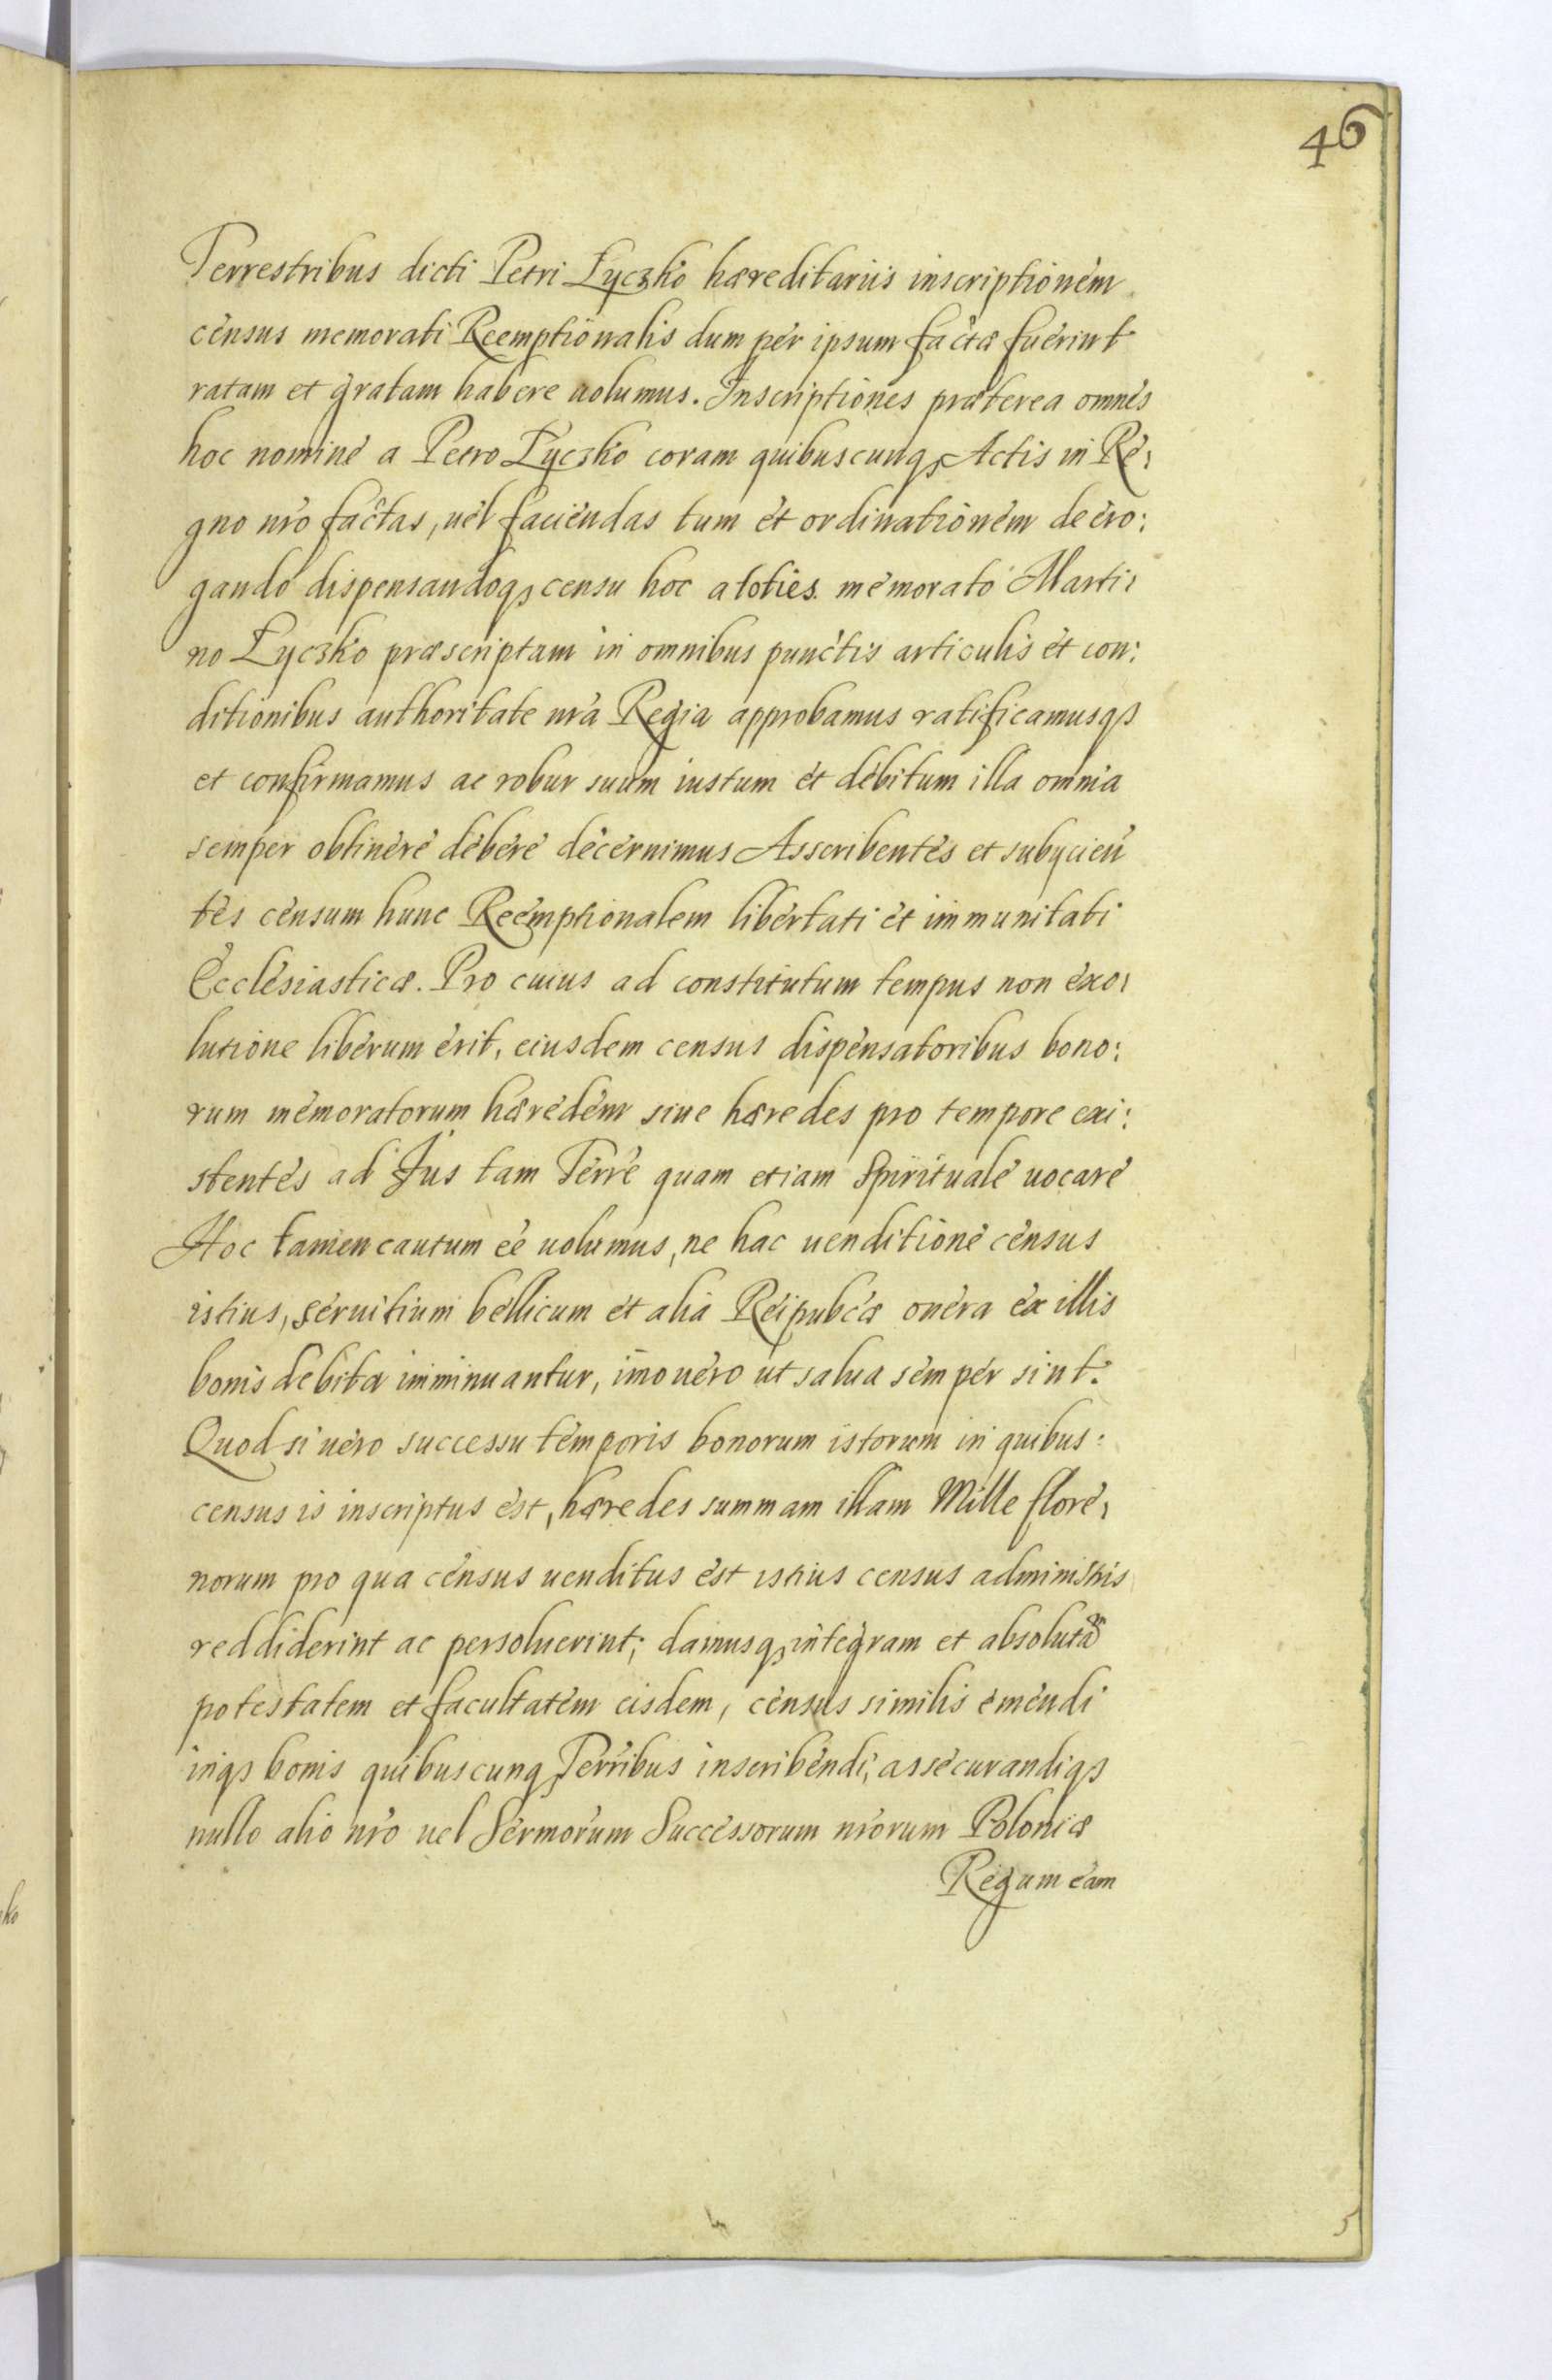 46
Terrestribus dicti Petri Łyczko hæreditariis inscriptionem
census memorati Reemptionalis dum per ipsum factæ fuerint
ratam et gratam habere uolumus. Inscriptiones præterea omnes
hoc nomine a Petro Łyczko coram quibuscunqꝫ Actis in Re:
gno nro factas, uel faciendas tum et ordinationem de ero:
gando dispensandoqꝫ censu hoc a toties memorato Marti:
no Łyczko præscriptam in omnibus punctis articulis et con:
ditionibus authoritate nra Regia approbamus ratificamusqꝫ
et confirmamus ac robur suum iustum et debitum illa omnia
semper obtinere debere decernimus Asscribentes et subijcien
tes censum hunc Reemptionalem libertati et immunitati
Ecclesiasticæ. Pro cuius ad constitutum tempus non exo:
lutione liberum erit, eiusdem census dispensatoribus bono:
rum memoratorum hæredem siue hæredes pro tempore exi:
stentes ad Jus tam Terre quam etiam Spirituale uocare
Hoc tamen cautum ee uolumus, ne hac uenditione census
istius, seruitium bellicum et alia Reipubcæ onera ex illis
bonis debita imminuantur, imo uero ut salua semper sint.
Quod si uero successu temporis bonorum istorum in quibus:
census is inscriptus est, hæredes summam illam Mille flore:
norum pro qua census uenditus est istius census administris
reddiderint ac persoluerint; damusqꝫ integram et absolutã
potestatem et facultatem eisdem, census similis emendi
inqꝫ bonis quibuscunqꝫ Terribus inscribendi, assecurandiqꝫ
nullo alio nro uel Sermorum Successorum nrorum Poloniæ
Regum eam
5